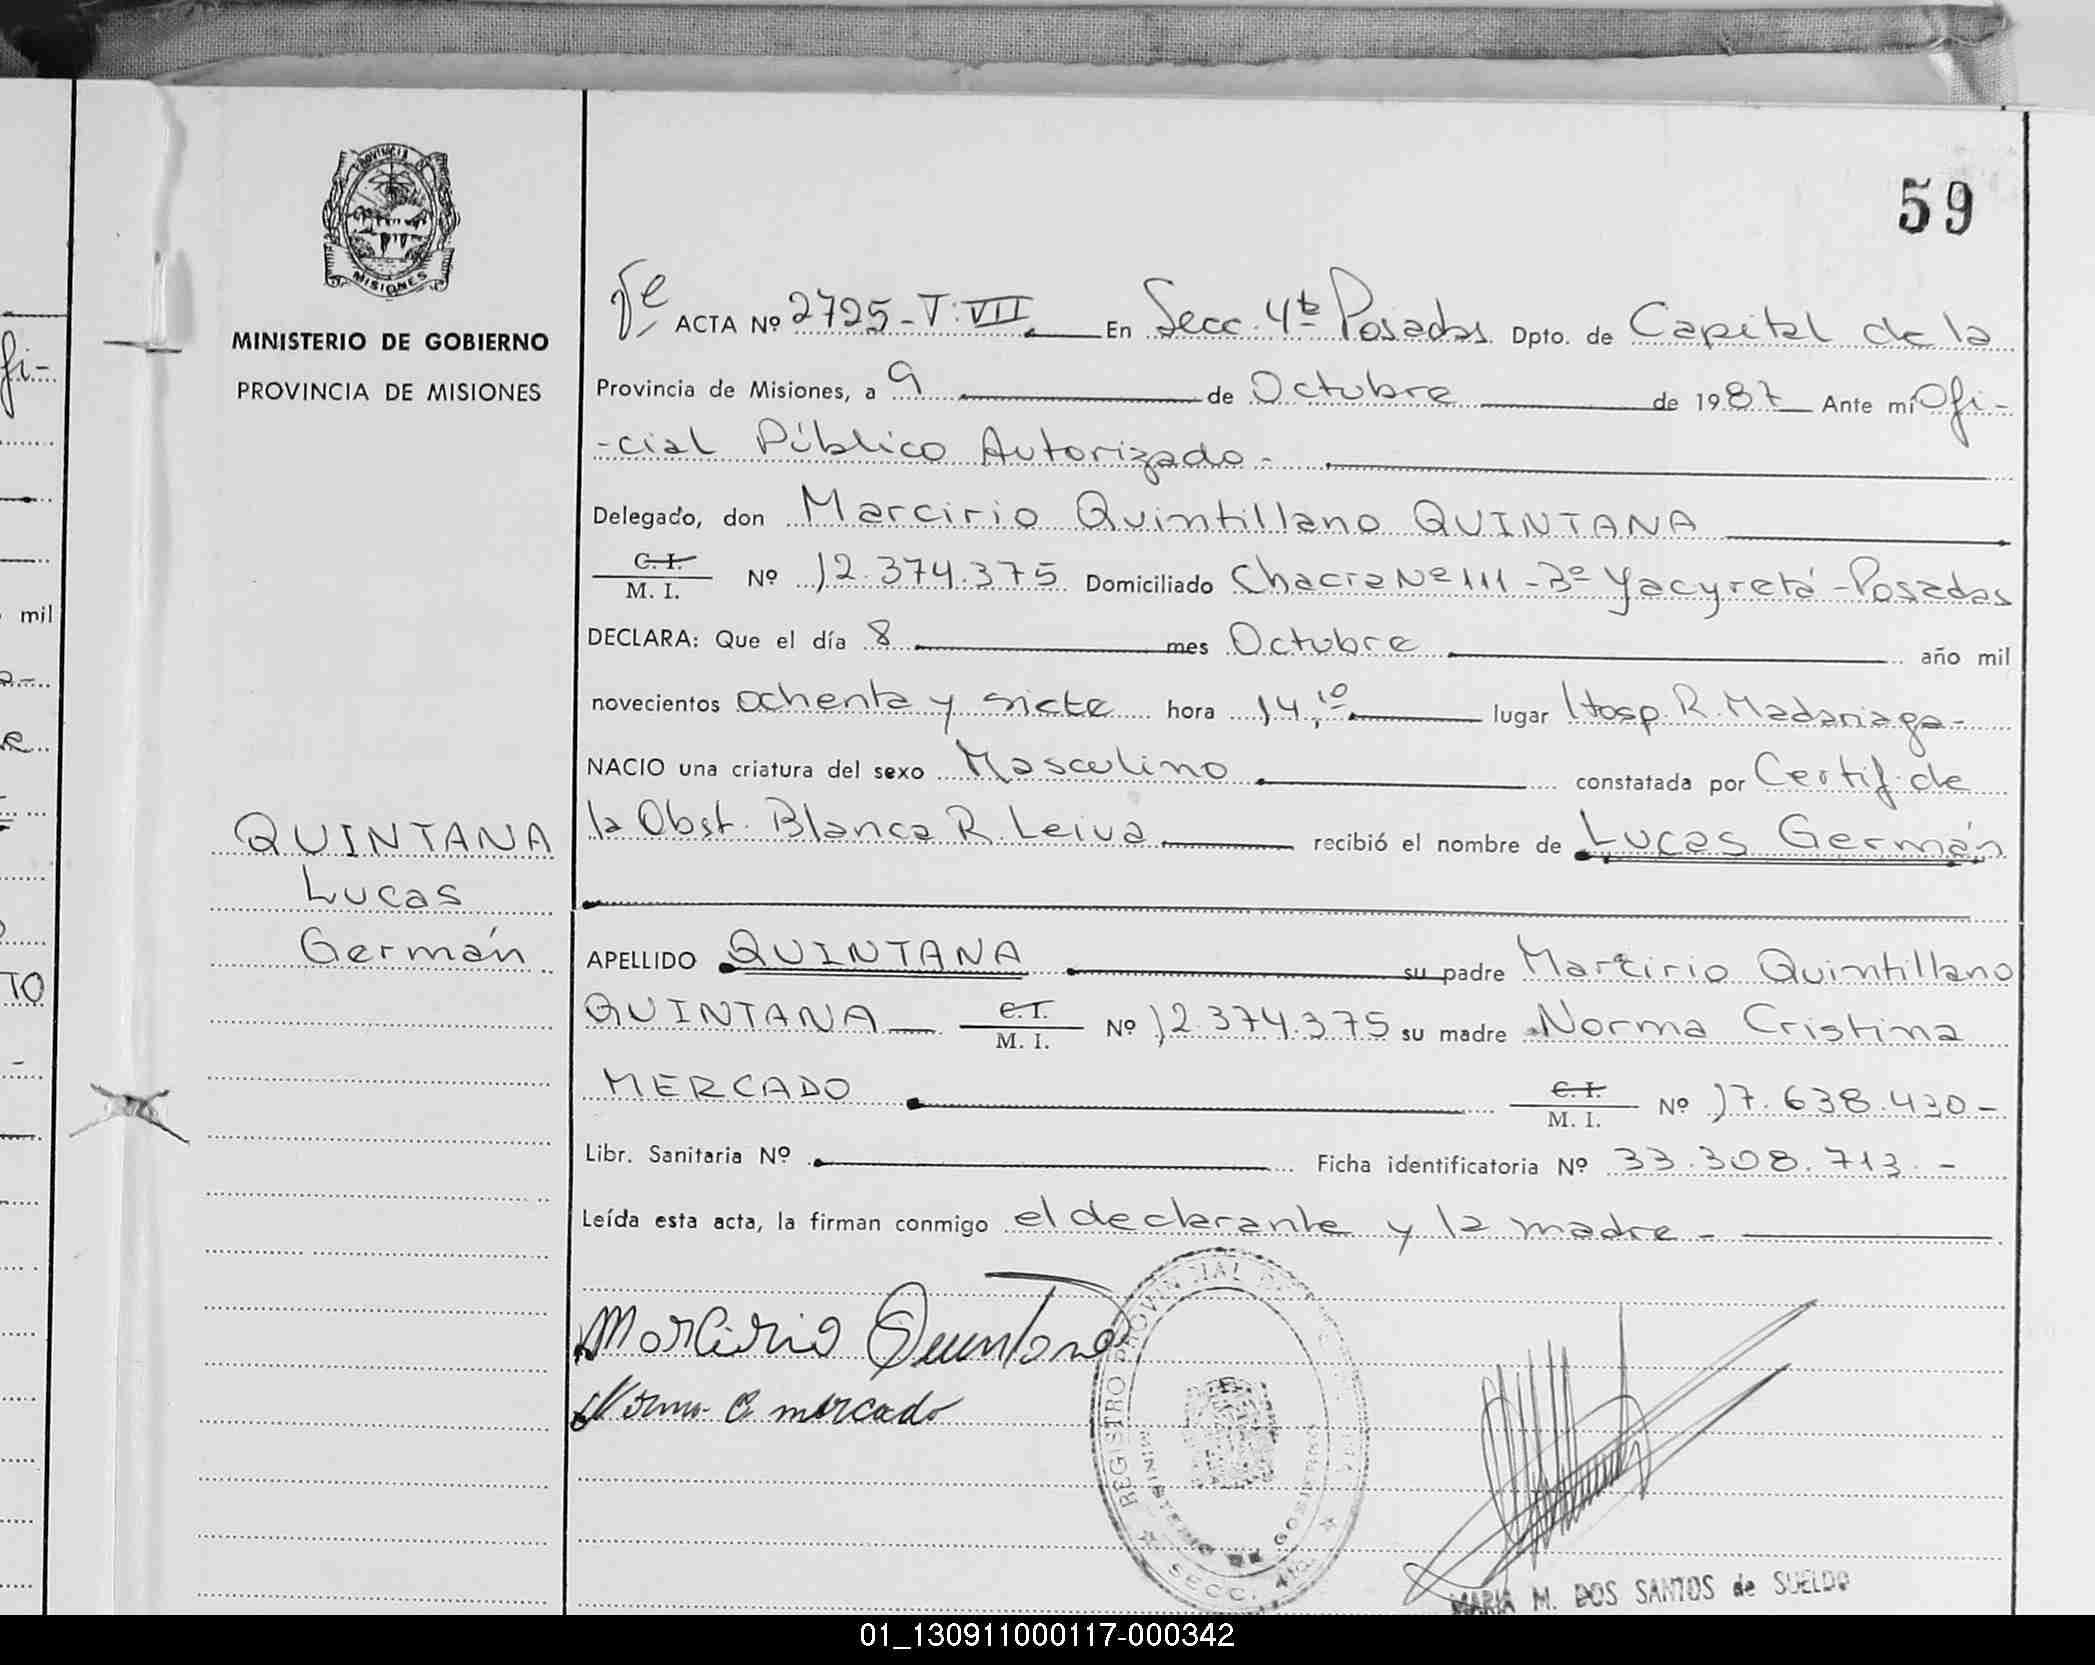 59
PROVINCIA DE
MISIONES
MINISTERIO DE GOBIERNO
PROVINCIA DE MISIONES
ACTA Nº 2725-T:VII En Secc. 4ta Posadas Dpto. de Capital de la
Provincia de Misiones, a 9 de Octubre de 1987 Ante mi Ofi-
-cial Público Autorizado-
Delegado, don Marcirio Quintillano QUINTANA
C.I. / M. I. Nº 12.374.375 Domiciliado Chacra Nº 111 - Bº Yacyretá - Posadas
DECLARA: Que el día 8 mes Octubre año mil
novecientos ochenta y siete hora 14,10 lugar Hosp. R. Madariaga-
NACIO una criatura del sexo Masculino constatada por Certif. de
la Obst. Blanca R. Leiva recibió el nombre de Lucas Germán
QUINTANA
Lucas
Germán
APELLIDO QUINTANA su padre Marcirio Quintillano
QUINTANA C.I. / M. I. Nº 12.374.375 su madre Norma Cristina
MERCADO C.I. / M. I. Nº 17.638.430-
Libr. Sanitaria Nº Ficha identificatoria Nº 33.308.713.-
Leída esta acta, la firman conmigo el declarante y la madre-
Marcirio Quintana
Norma C. mercado
REGISTRO PROVINCIAL DE
MINISTERIO DE GOBIERNO
SECC. 4ta.
MARIA M. DOS SANTOS de SUELDO
mil
TO
01_130911000117-000342